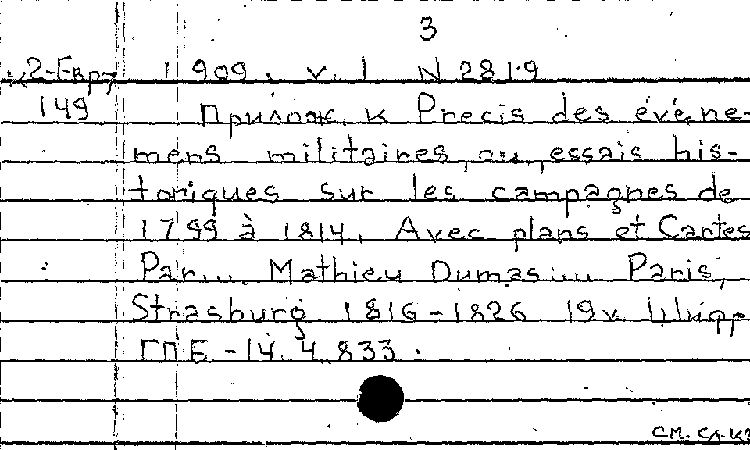 3
К2-Евр 1909. v. 1 N 2819
149 Прилож. к Precis des événe-
mens militaires, ou essais his-
toriques sur les campagnes de
1799 à 1814. Avec plans et Cartes
Par... Mathieu Dumas... Paris,
Strasburg 1816-1826 19 v. Шифр
ГПБ - 14. 4. 833.
см. сл. к